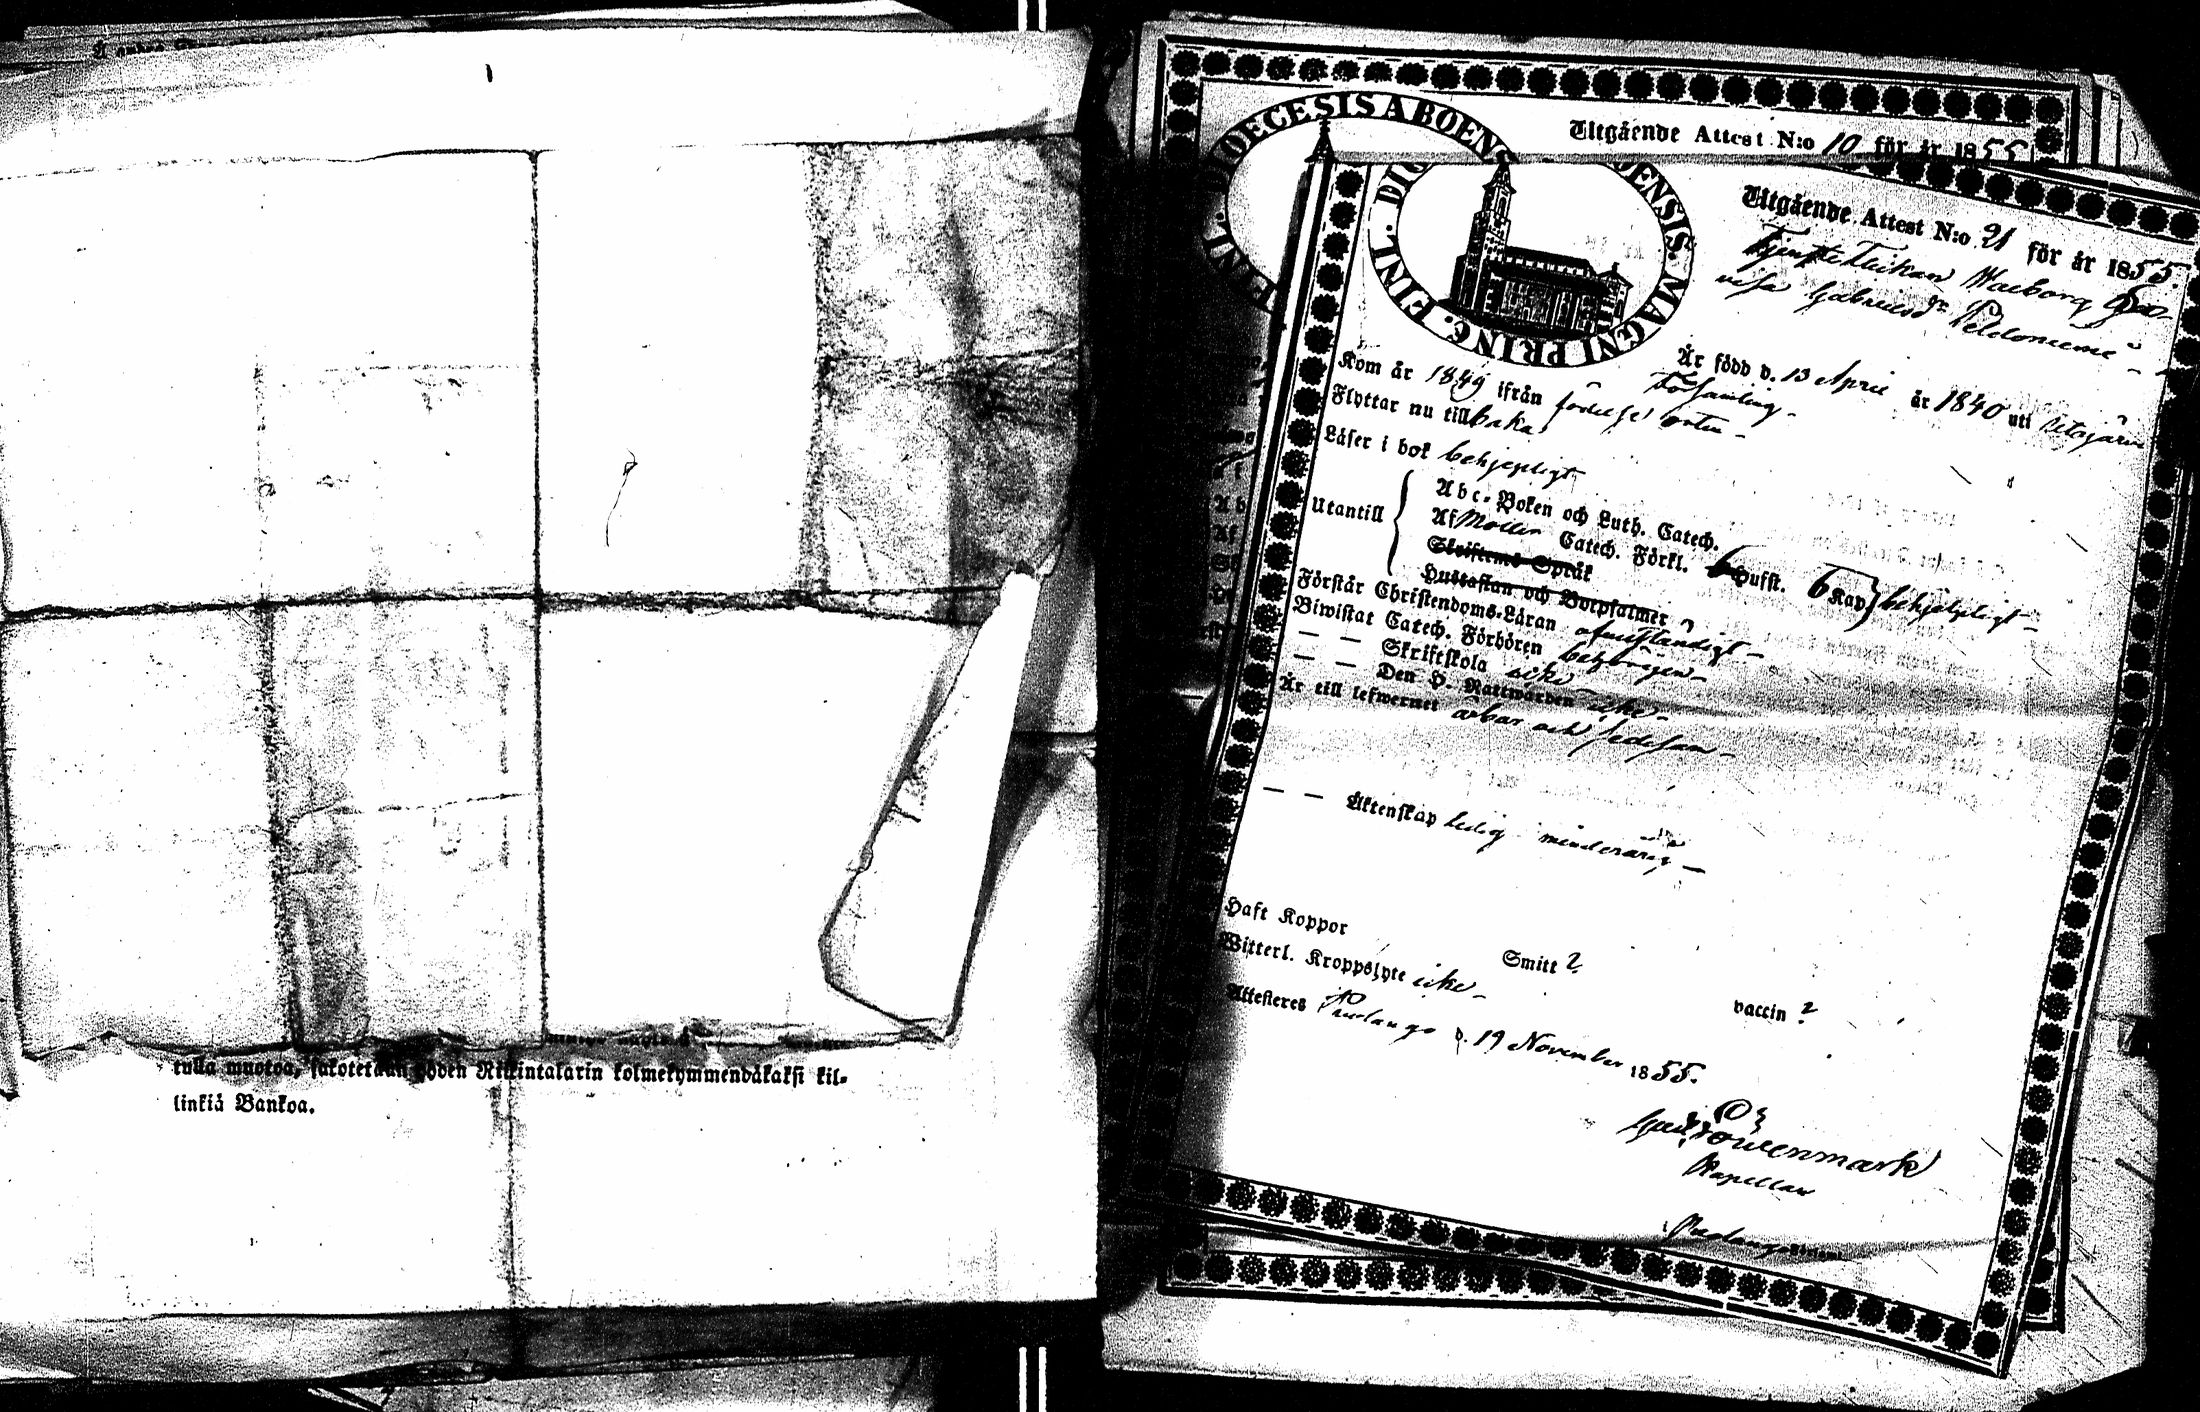 tulla muotoa, sakotetaan yhden Riksintalarin kolmekymmendäkaksi kil-
linkiä Bankoa.
Utgående Attest N:o 10 för år 1855
DIOECESIS ABOENS
FINL.
FINL. DIOENSIS. MAGNI PRINC.
Utgående Attest N:o 21 för år 1855.
Tjenste Flickan Walborg
Gabrielsdr
Är född d. 13 April år 1840 uti
Församling.
Kom år 1849 ifrån födelse orten
Flyttar nu tillbaka
Läser i bok behjepligt
Utantill
Abc-Boken och Luth. Catech.
Af Möller Catech. Förkl. 6 Hufst. 6 Kap behjelpligt
Skriftens Språk
Hustaflan och Botpsalmer
Förstår Christendoms-Läran
Biwistat Catech. Förhören behörigen
— — Skriftskola icke
— — Den H. Nattwarden icke
Är till lefwernet ärbar och sedesam
— — Äktenskap ledig minderårig
Haft Koppor Smitt ? vaccin ?
Witterl. Kroppslyte icke
Attesteres d. 19 November 1855.
Löwenmark
Kapellan